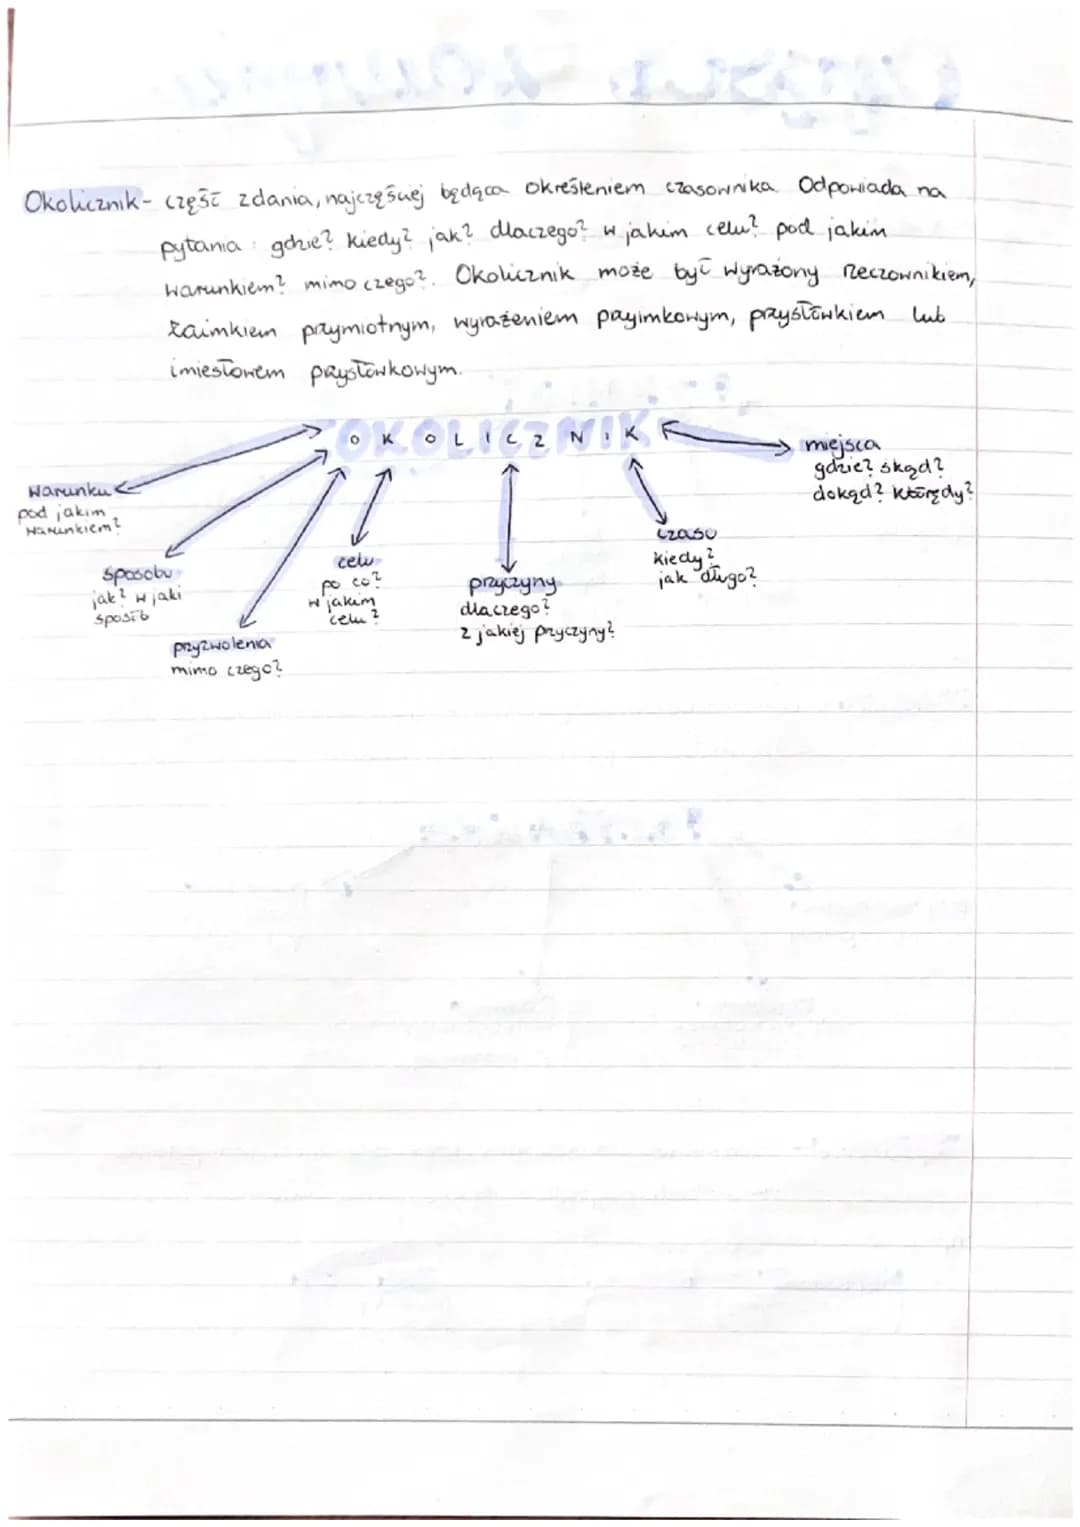 Okolicznik - część zdania, najczęściej będąca określeniem czasownika. Odpowiada na
pytania: gdzie? kiedy? jak? dlaczego? w jakim celu? pod jakim
warunkiem? mimo czego?. Okolicznik może być wyrażony rzeczownikiem,
zaimkiem przymiotnym, wyrażeniem przyimkowym, przysłówkiem lub
imiesłowem przysłówkowym.
OKOLICZNIK
miejsca
gdzie? skąd?
dokąd? którędy?
warunku
pod jakim
warunkiem?
czasu
kiedy?
jak długo?
celu
po co?
w jakim
celu?
sposobu
jak? w jaki
sposób
przyczyny
dlaczego?
z jakiej przyczyny?
przyzwolenia
mimo czego?